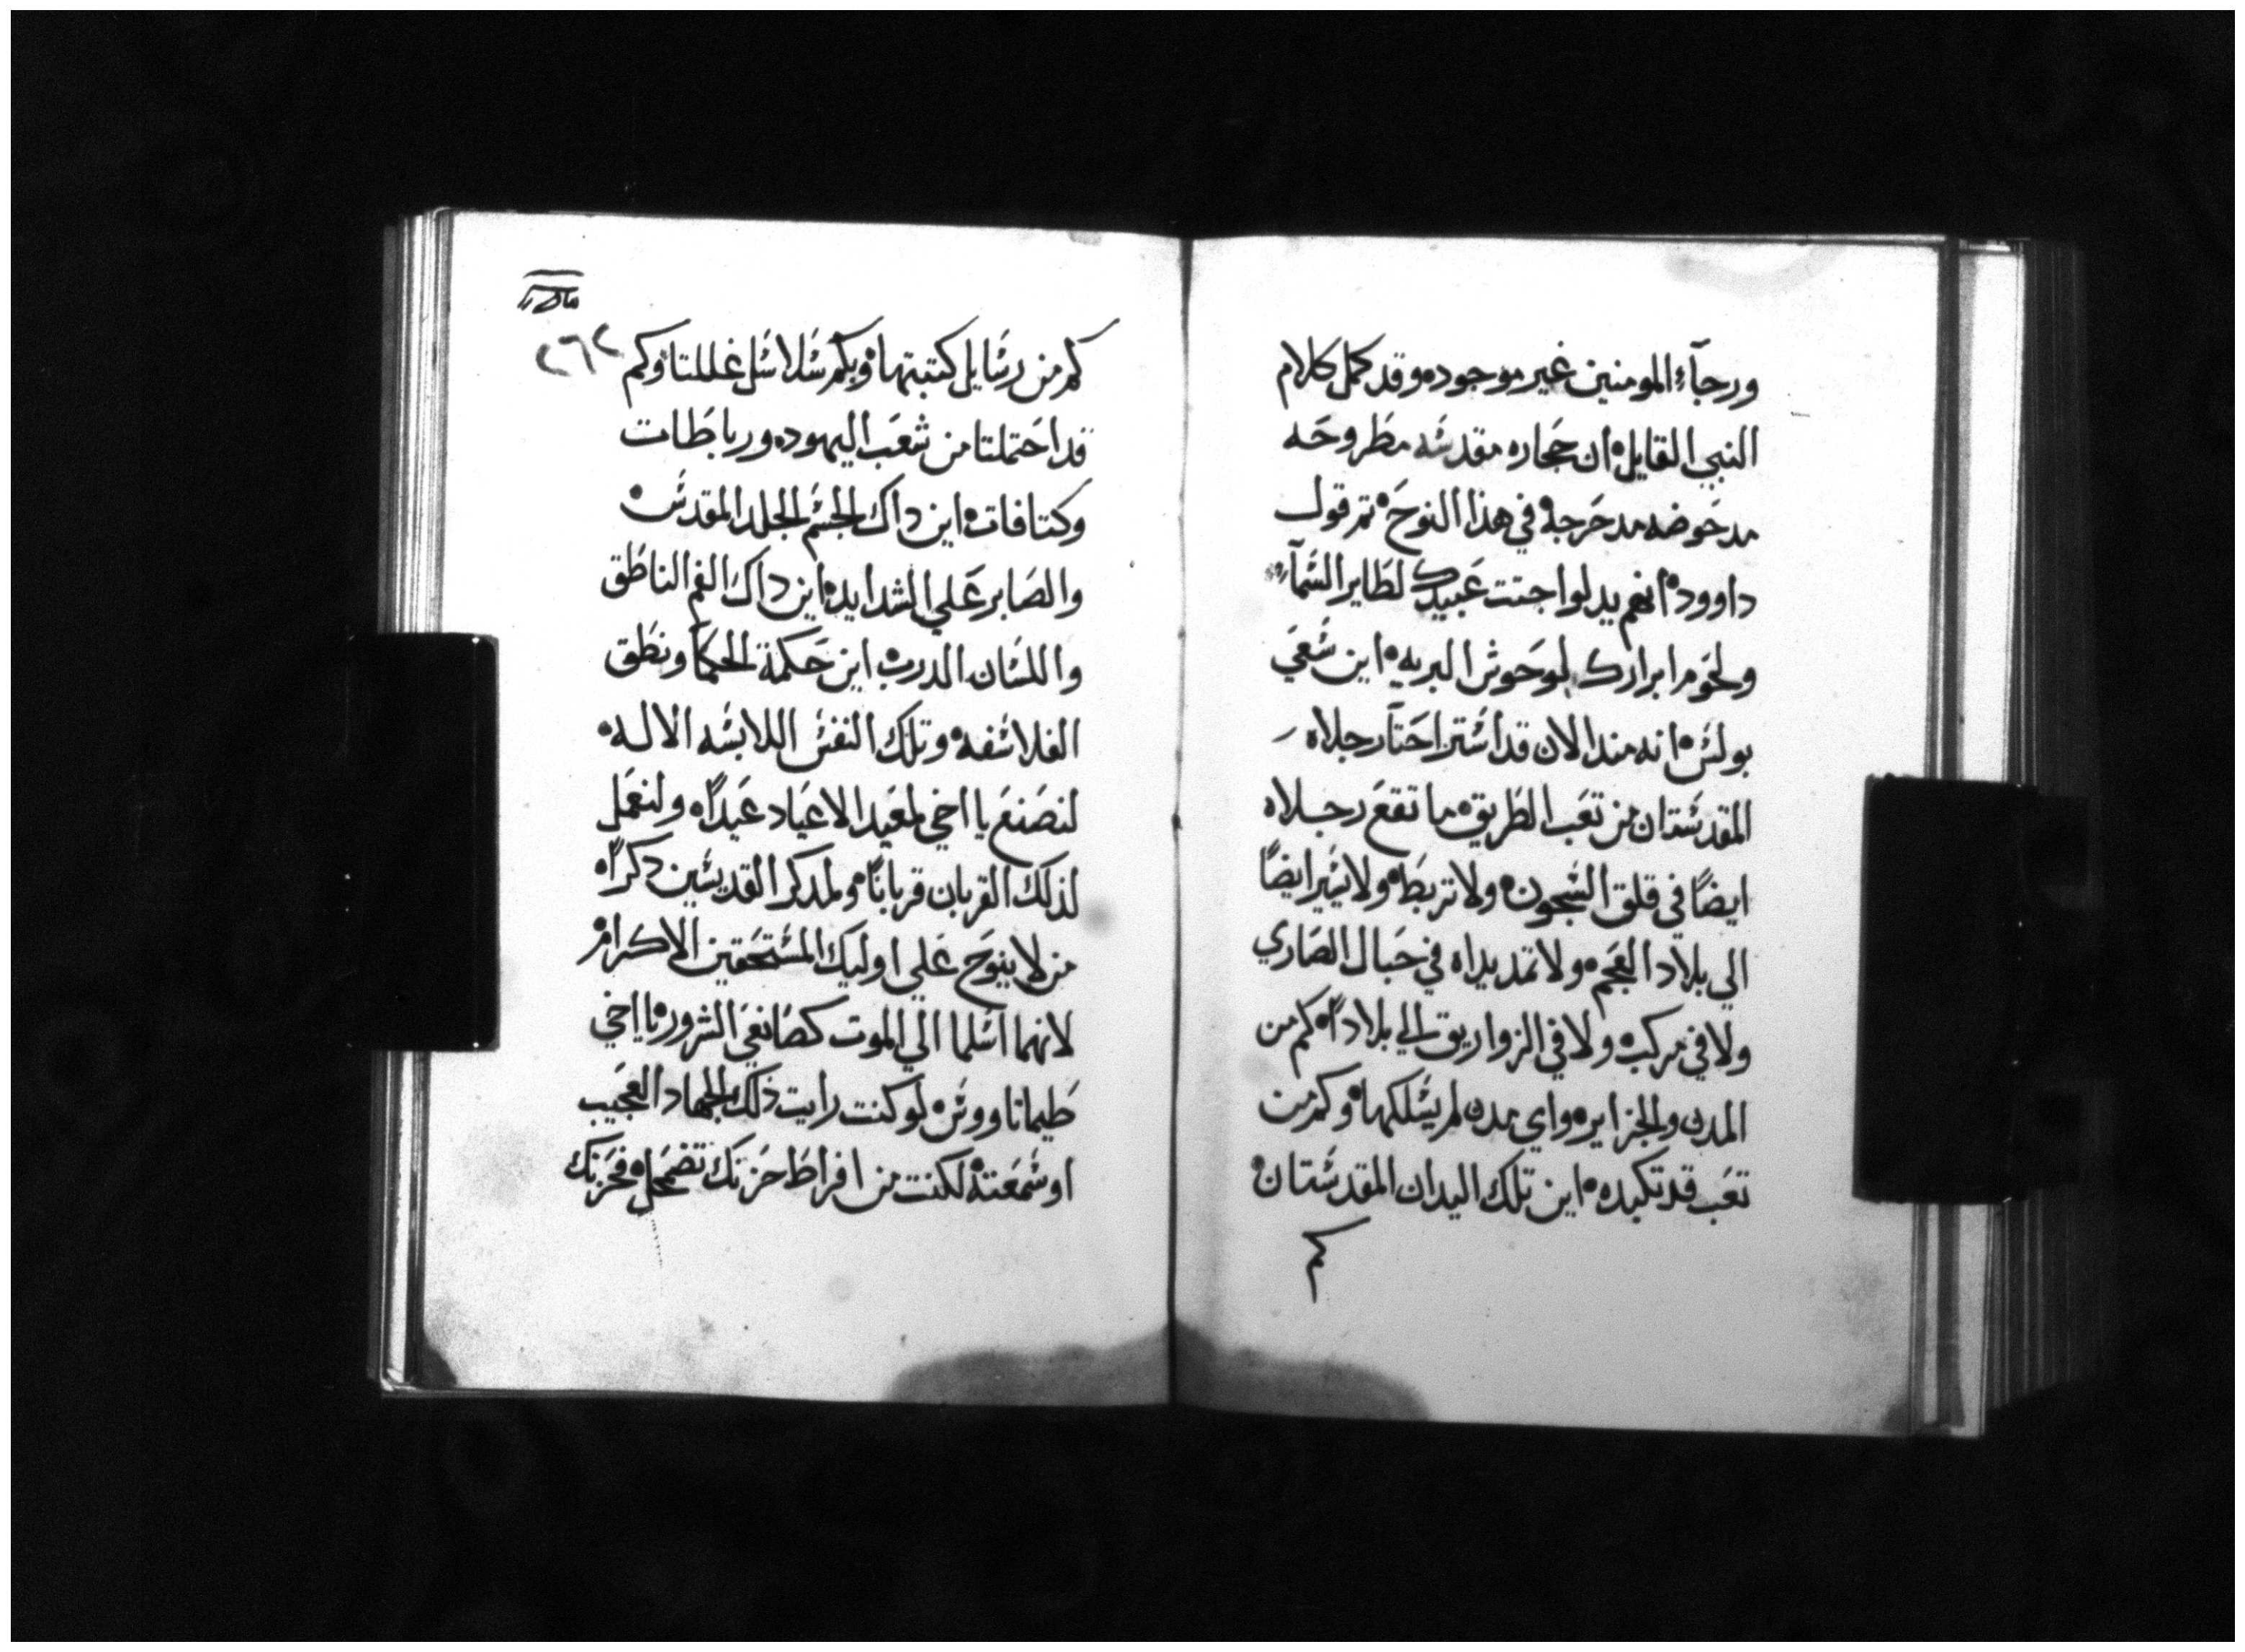 ورجآء المومنين غير موجوده وقد كمل كلام
النبي القايل ان حجاره مقدسه مطروحه
مدحوضه مدحرجه في هذا النوح تم قول
داوود انهم بدلوا جتت عبيدك لطاير السمآء
ولحوم ابرارك لوحوش البريه اين سعي
بولس انه مند الان قد استراحتآ رجلاه
المقدستان من تعب الطريق ما تقع رجلاه
ايضًا في قلق السجون ولا تربط ولا يسير ايضًا
الي بلاد العجم ولا تمد يداه في حبال الصاري
ولا في مركب ولا في الزواريق الي بلادًا كم من
المدن والجزاير واي مدن لم يسلكها وكم من
تعب قد تكبده اين تلك اليدان المقدستان
كم
٢٦٢
كم من رسايل كتبتها وبكم سلاسل غللتا وكم
قد احتملتا من شعب اليهود ورباطات
وكتافات اين داك الجسم الجلد المقدس
والصابر علي الشدايد اين داك الفم الناطق
واللسان الدرب اين حكمة الحكمآ ونطق
الفلاسفه وتلك النفس اللابسه الاله
لنصنع يا اخي لمعيد الاعياد عيدًا ولنعمل
لذلك القربان قربانًا ولمدكر القديسين دكرًا
من لا ينوح علي اوليك المستحقين الاكرام
لانهما اسلما الي الموت كصانعي الشرور يا اخي
طيماتاووس لو كنت رايت ذلك الجهاد العجيب
او سمعته لكنت من افراط حزنك تضمحل فحزنك